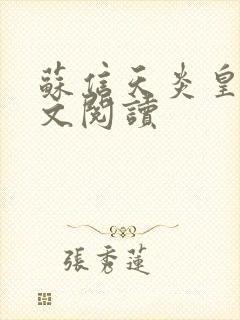 蘇信天炎皇
文閱讀
張秀蓮